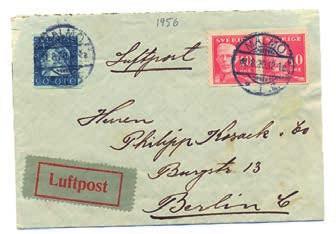 1956
MALMÖ
60 ÖRE
Luftpost
SVERIGE
MALMÖ
Herren
Philipp Kosack & Co
Burgstr 13
Berlin C
Luftpost